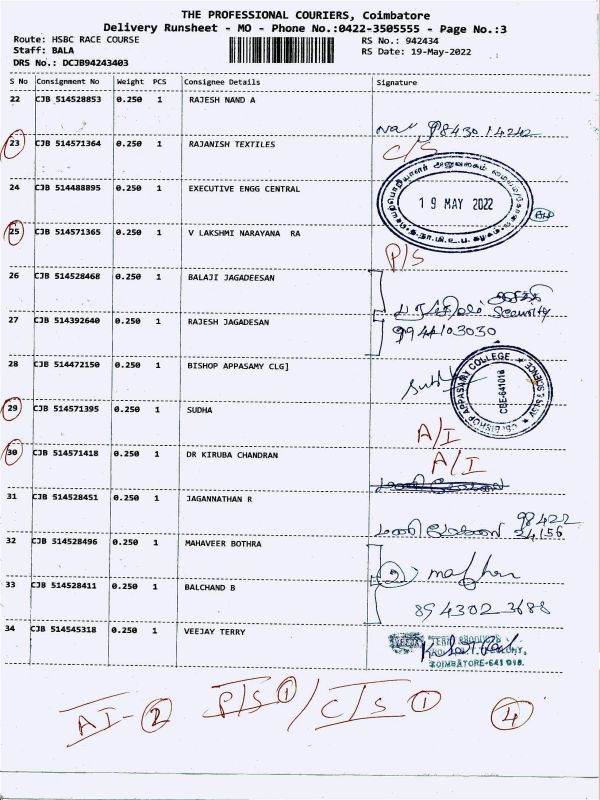 THE PROFESSIONAL COURIERS, Coimbatore
Delivery Runsheet - MO - Phone No.:0422-3505555 - Page No.:3
Route: HSBC RACE COURSE RS No.: 942434
Staff: BALA RS Date: 19-May-2022
DRS No.: DCJB94243403
S No Consignment No Weight PCS Consignee Details Signature
22 CJB 514528853 0.250 1 RAJESH NAND A
23 CJB 514571364 0.250 1 RAJANISH TEXTILES C/S
24 CJB 514488895 0.250 1 EXECUTIVE ENGG CENTRAL
19 MAY 2022
25 CJB 514571365 0.250 1 V LAKSHMI NARAYANA RA P/S
26 CJB 514528468 0.250 1 BALAJI JAGADEESAN
Security
27 CJB 514392640 0.250 1 RAJESH JAGADESAN 9944103030
28 CJB 514472150 0.250 1 BISHOP APPASAMY CLG]
C.S.I. BISHOP APPASAMY COLLEGE
CBE-641018
29 CJB 514571395 0.250 1 SUDHA A/I
30 CJB 514571418 0.250 1 DR KIRUBA CHANDRAN A/I
31 CJB 514528451 0.250 1 JAGANNATHAN R 98422
24156
32 CJB 514528496 0.250 1 MAHAVEER BOTHRA
33 CJB 514528411 0.250 1 BALCHAND B
34 CJB 514545318 0.250 1 VEEJAY TERRY
COIMBATORE-641 018.
AI-2 P/S 1 / C/S 1 4